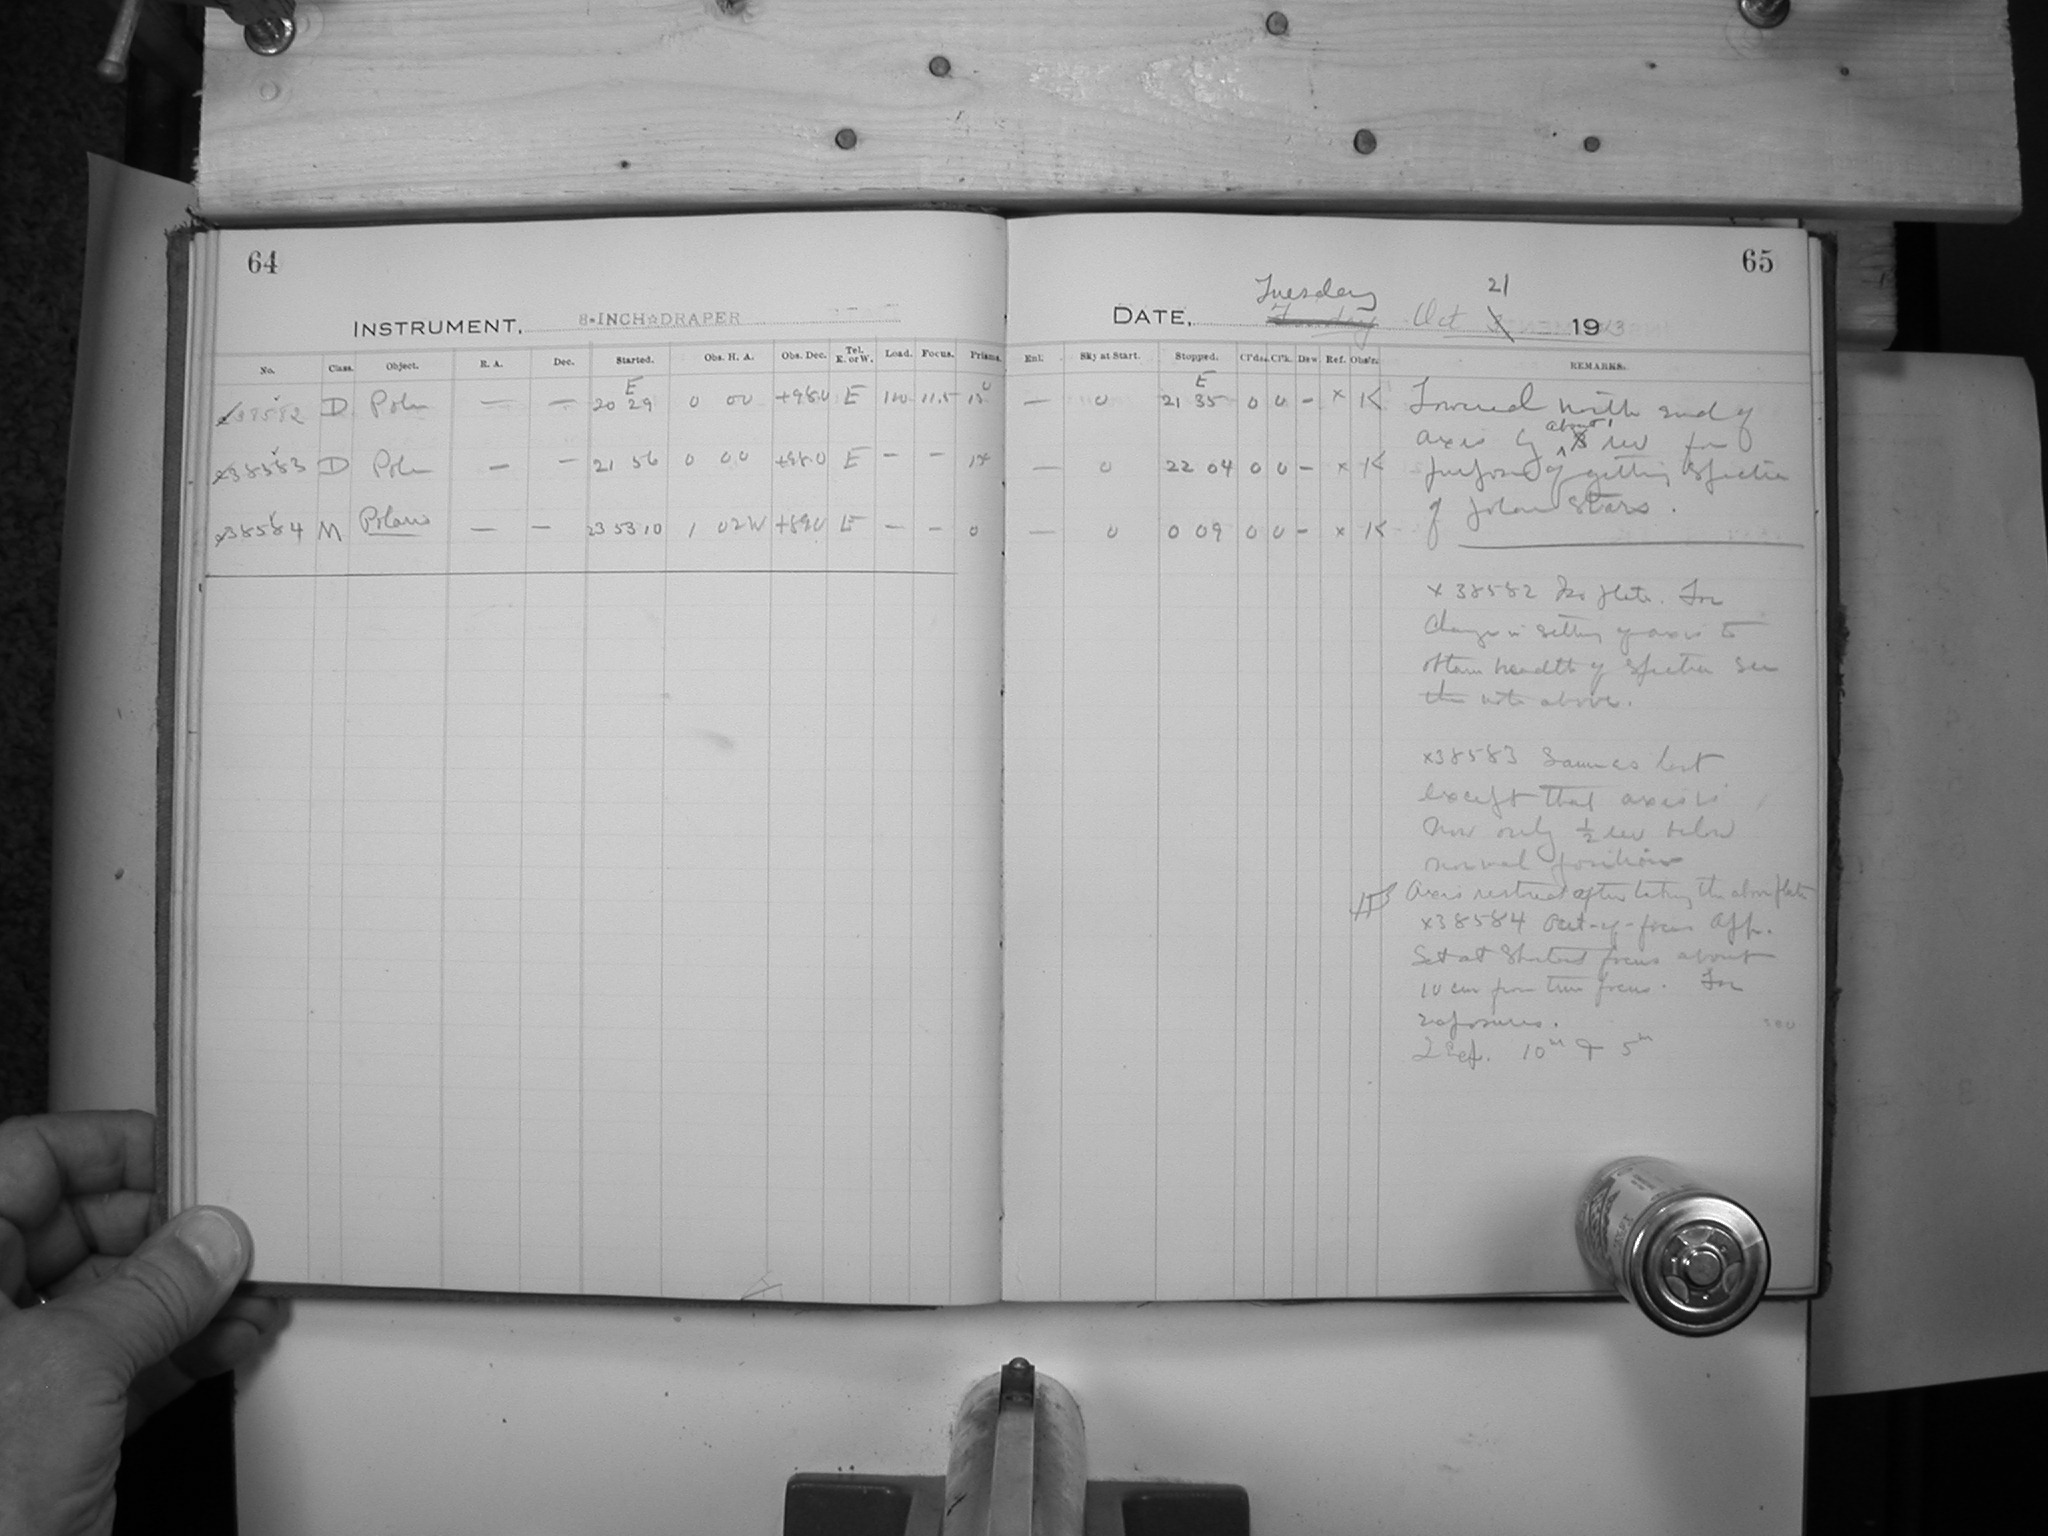 64
INSTRUMENT, 8-INCH☆DRAPER
No. Class. Object. R. A. Dec. Started. Obs. H. A. Obs. Dec. Tel. E. or W. Load. Focus. Prisms.
E
x38582 D Pole — — 20 29 0 00 E 100 11.5
x38583 D Pole — — 21 56 0 00 E — —
x38584 M Polaris — — 23 53 10 1 02W +89.0 E — — 0
65
Tuesday 21
DATE, Oct 1913
Enl. Sky at Start. Stopped. Cl'ds. Cl'k. Dew. Ref. Obs'r. REMARKS.
E
— 0 21 35 0 0 – x K
— 0 22 04 0 0 – x K
— 0 0 09 0 0 – x K
Lowered north end of
axis by about rev for
purpose of getting spectra
of polar stars.
x 38582 Iso plate. For
change in setting of axis to
obtain breadth of spectra see
the note above.
x38583 Same as last
except that axis is
now only ½ rev below
normal position
Axis restored after taking the above plate
x38584 Out-of-focus App.
Set at shortest focus about
10 cm from true focus. For
exposures.
2 Exp. 10m & 5m